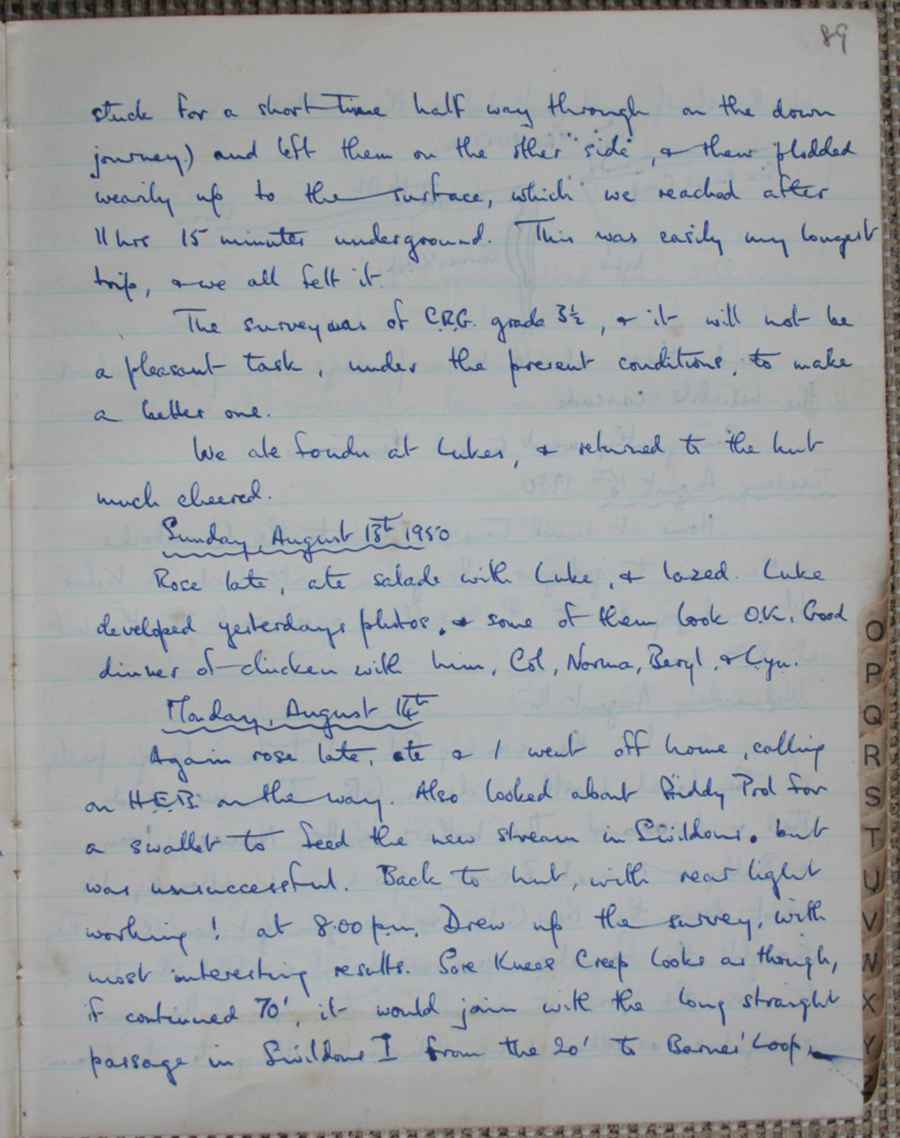 89
stuck for a short time half way through on the down
journey) and left them on the other side, & then plodded
wearily up to the surface, which we reached after
11 hrs 15 minutes underground. This was easily my longest
trip, & we all felt it.
The survey was of C.R.G. grade 3½, & it will not be
a pleasant task, under the present conditions, to make
a better one.
We ate at Lukes, & returned to the hut
much cheered.
Sunday, August 13th 1950
Rose late, ate salade with Luke, & lazed. Luke
developed yesterdays photos, & some of them look O.K. Good
dinner of chicken with him, Col, Norma, Beryl, & Lyn.
Monday, August 14th
Again rose late, ate & I went off home, calling
on H.E.B. on the way. Also looked about Priddy Pool for
a swallet to feed the new stream in Swildons, but
was unsuccessful. Back to hut, with rear light
working! at 8.00 p.m. Drew up the survey, with
most interesting results. Sore Knees Creep looks as though,
if continued 70', it would join with the long straight
passage in Swildons I from the 20' to Barnes' Loop.
O
P
Q
R
S
T
U
V
W
X
Y
Z